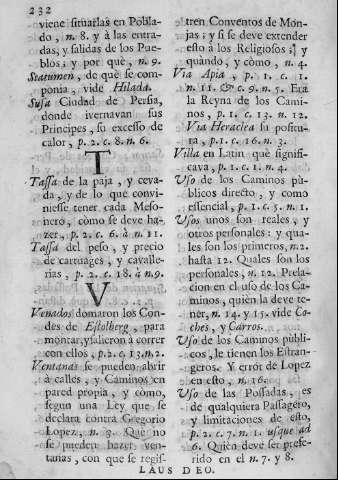 232
viene situarlas en Pobla-
do, n. 8. y à las entra-
das, y salidas de los Pue-
blos; y por què, n. 9.
Statumen, de què se com-
ponia, vide Hilada.
Susa Ciudad de Persia,
donde ivernavan sus
Principes, su excesso de
calor, p. 2. c. 8. n. 6.
T
Tassa de la paja, y ceva-
da, y de lo què convi-
niesse tener cada Meso-
nero, còmo se deve ha-
zer, p. 2. c. 6. à n. 11.
Tassa del peso, y precio
de carruages, y cavalle-
rias, p. 2. c. 18. à n. 9.
V
Venados domaron los Con-
des de Estolberg, para
montar, y salieron à correr
con ellos, p. 2. c. 13. n. 2.
Ventanas se pueden abrir
à calles, y Caminos en
pared propia, y còmo,
segun una Ley que se
declara contra Gregorio
Lopez, n. 3. Què no
se pueden hazer ven-
tanas, con que se regis-
tren Conventos de Mon-
jas; y si se deve extender
esto à los Religiosos; y
quàndo, y còmo, n. 4.
Via Apia, p. 1. c. 1.
n. 11. & c. 9. n. 5. Era
la Reyna de los Cami-
nos, p. 1. c. 13. n. 12.
Via Heraclea su positu-
ra, p. 1. c. 16. n. 3.
Villa en Latin què signifi-
cava, p. 1. c. 1. n. 4.
Uso de los Caminos pù-
blicos directo, y como
essencial, p. 1. c. 5. n. 1.
Usos unos son reales, y
otros personales: y qua-
les son los primeros, n. 2.
hasta 12. Quales son los
personales, n. 12. Prela-
cion en el uso de los Ca-
minos, quièn la deve te-
ner, n. 14. y 15. vide Co-
ches, y Carros.
Uso de los Caminos pùbli-
cos, le tienen los Estran-
geros. Y errór de Lopez
en esto, n. 16.
Uso de las Possadas, es
de qualquiera Passagero,
y limitaciones de esto,
p. 2. c. 7. n. 1. usque ad
6. Quièn deve ser prefe-
rido en el n. 7. y 8.
LAUS DEO.